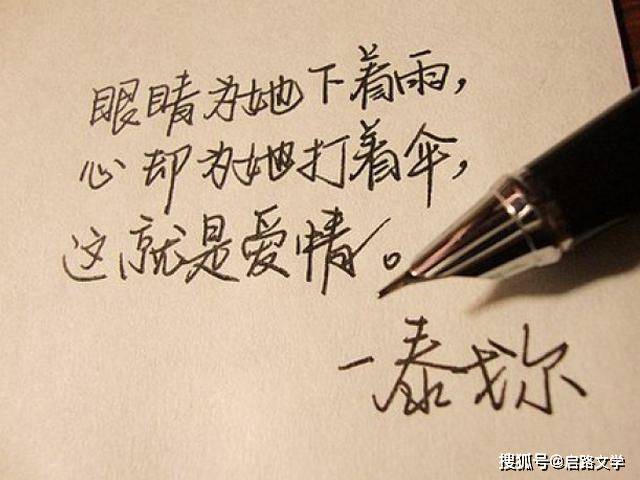 眼睛为她下着雨，
心却为她打着伞，
这就是爱情。
一泰戈尔
搜狐号@启路文学